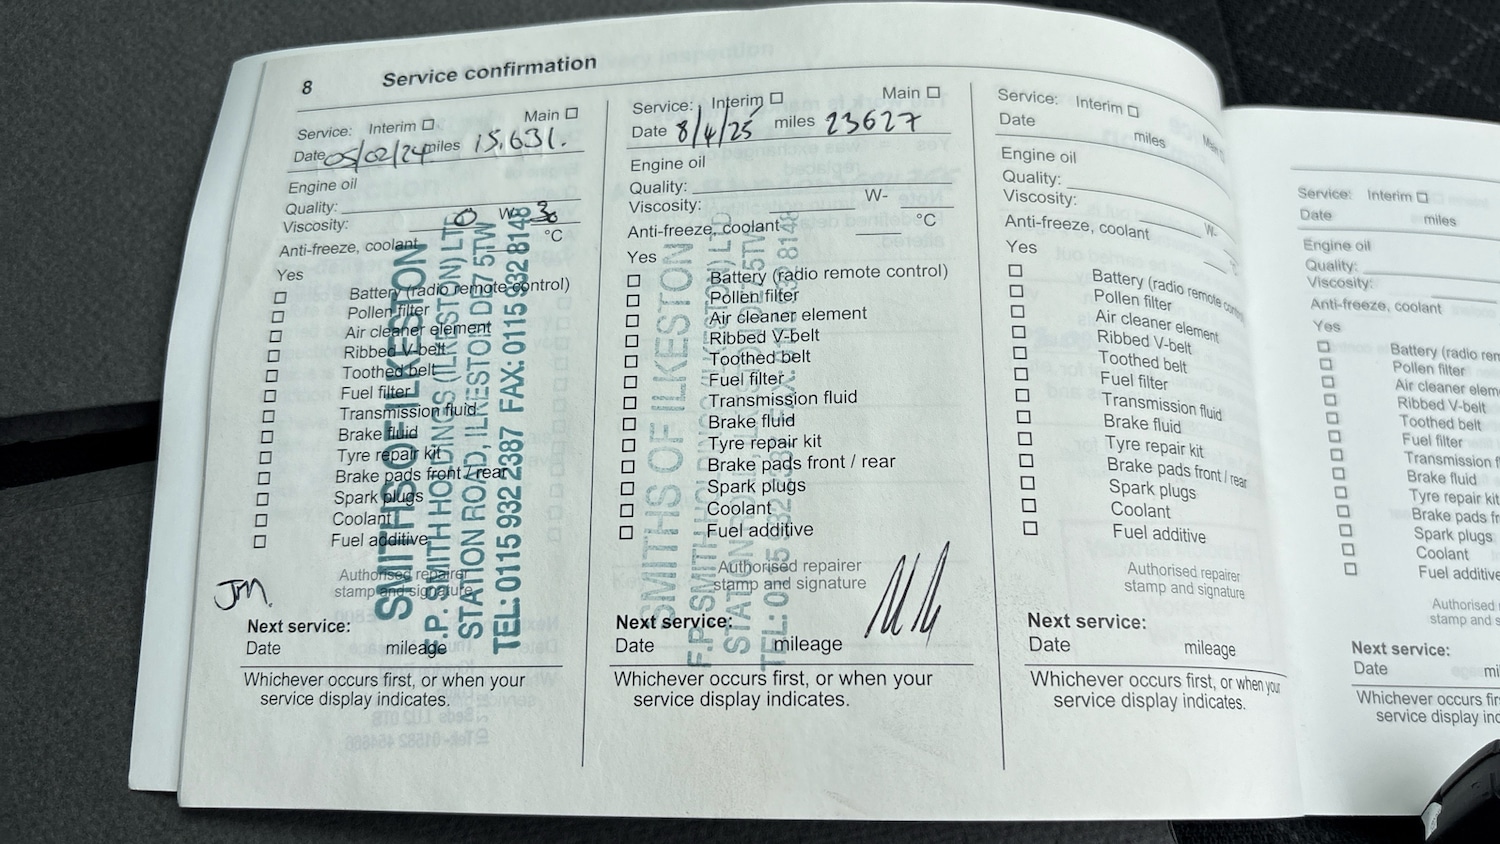 8 Service confirmation
Service: Interim □ Main □
Date 05/02/24 miles 15,631.
Engine oil
Quality:
Viscosity: 0 W- 30
Anti-freeze, coolant °C
Yes
□ Battery (radio remote control)
□ Pollen filter
□ Air cleaner element
□ Ribbed V-belt
□ Toothed belt
□ Fuel filter
□ Transmission fluid
□ Brake fluid
□ Tyre repair kit
□ Brake pads front / rear
□ Spark plugs
□ Coolant
□ Fuel additive
Authorised repairer
stamp and signature
JM.
SMITHS OF ILKESTON
F.P. SMITH HOLDINGS (ILKESTON) LTD
STATION ROAD, ILKESTON DE7 5TW
TEL: 0115 932 2387 FAX: 0115 932 8148
Next service:
Date mileage
Whichever occurs first, or when your
service display indicates.
Service: Interim □ Main □
Date 8/4/25 miles 23627
Engine oil
Quality:
Viscosity: W-
Anti-freeze, coolant °C
Yes
□ Battery (radio remote control)
□ Pollen filter
□ Air cleaner element
□ Ribbed V-belt
□ Toothed belt
□ Fuel filter
□ Transmission fluid
□ Brake fluid
□ Tyre repair kit
□ Brake pads front / rear
□ Spark plugs
□ Coolant
□ Fuel additive
Authorised repairer
stamp and signature
SMITHS OF ILKESTON
F.P. SMITH HOLDINGS (ILKESTON) LTD
STATION 5TW
TEL: 0115 932 8148
Next service:
Date mileage
Whichever occurs first, or when your
service display indicates.
Service: Interim □ Main
Date miles
Engine oil
Quality:
Viscosity: W-
Anti-freeze, coolant °C
Yes
□ Battery (radio remote control)
□ Pollen filter
□ Air cleaner element
□ Ribbed V-belt
□ Toothed belt
□ Fuel filter
□ Transmission fluid
□ Brake fluid
□ Tyre repair kit
□ Brake pads front / rear
□ Spark plugs
□ Coolant
□ Fuel additive
Authorised repairer
stamp and signature
Next service:
Date mileage
Whichever occurs first, or when your
service display indicates.
Service: Interim □
Date miles
Engine oil
Quality:
Viscosity:
Anti-freeze, coolant
Yes
□ Battery (radio rem
□ Pollen filter
□ Air cleaner elem
□ Ribbed V-belt
□ Toothed belt
□ Fuel filter
□ Transmission f
□ Brake fluid
□ Tyre repair kit
□ Brake pads fr
□ Spark plugs
□ Coolant
□ Fuel additive
Authorised
stamp and
Next service:
Date mi
Whichever occurs fir
service display ind